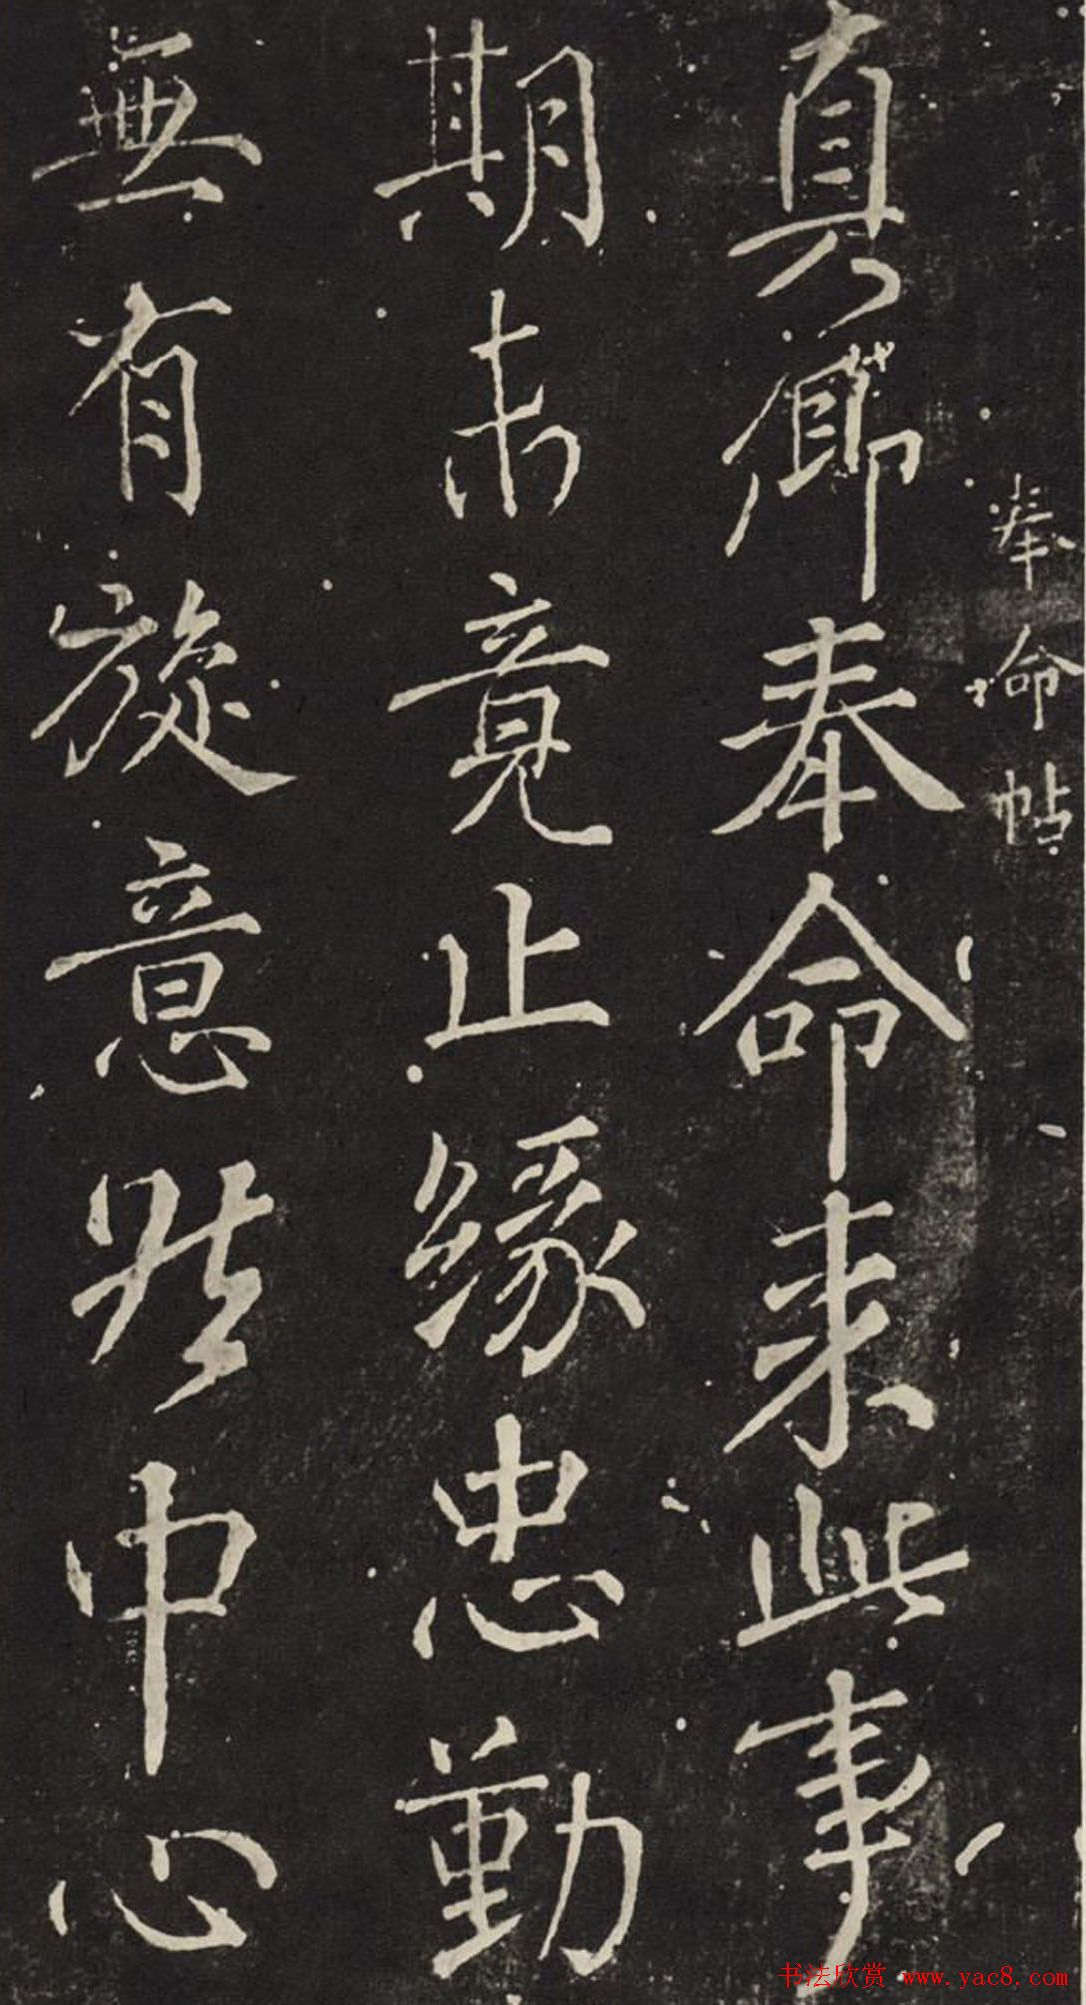 奉命帖
真卿奉命来此事
期未竟止緣忠勤
無有旋意然中心
书法欣赏 www.yac8.com